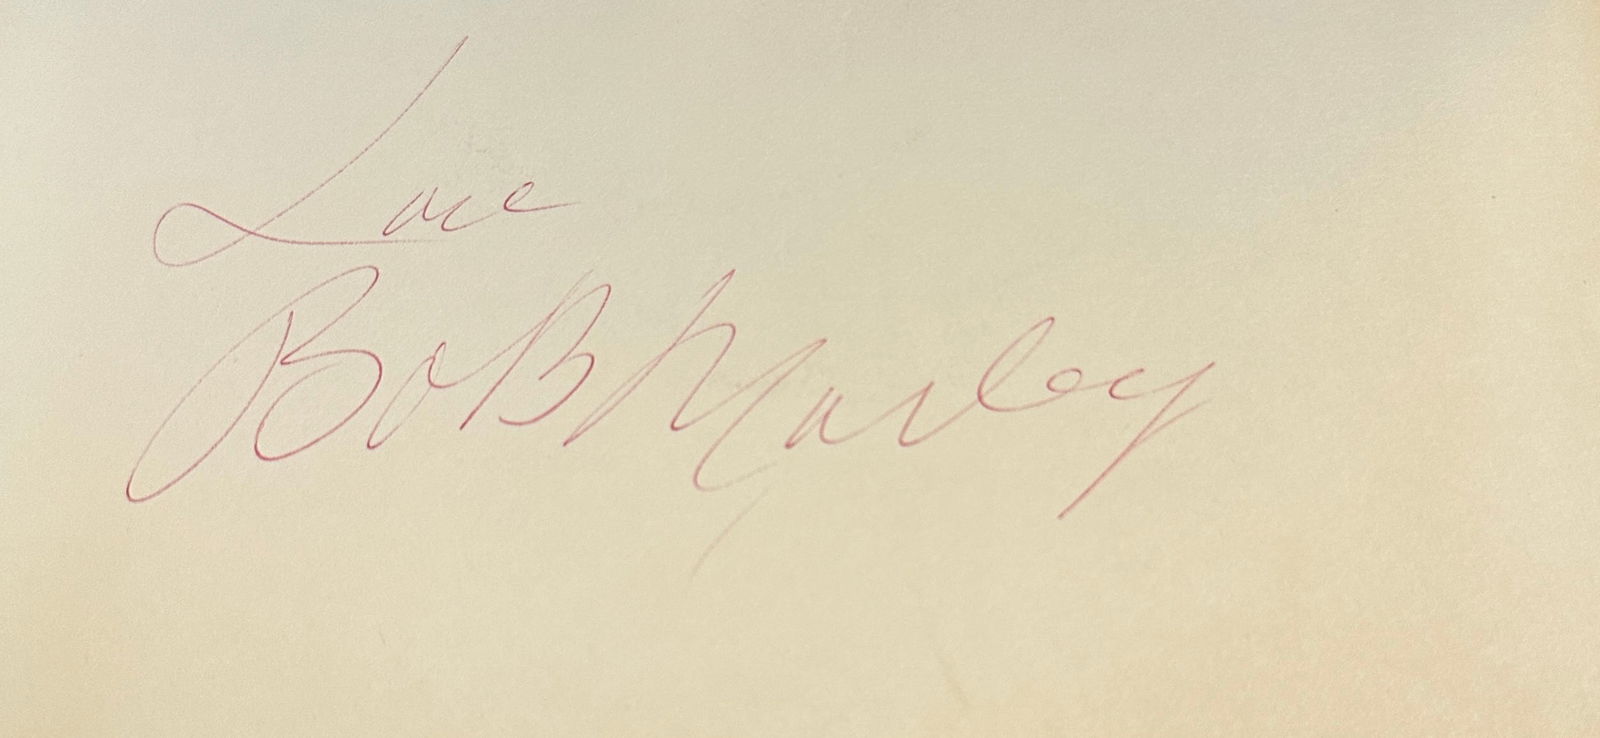 Love
BoB Marley